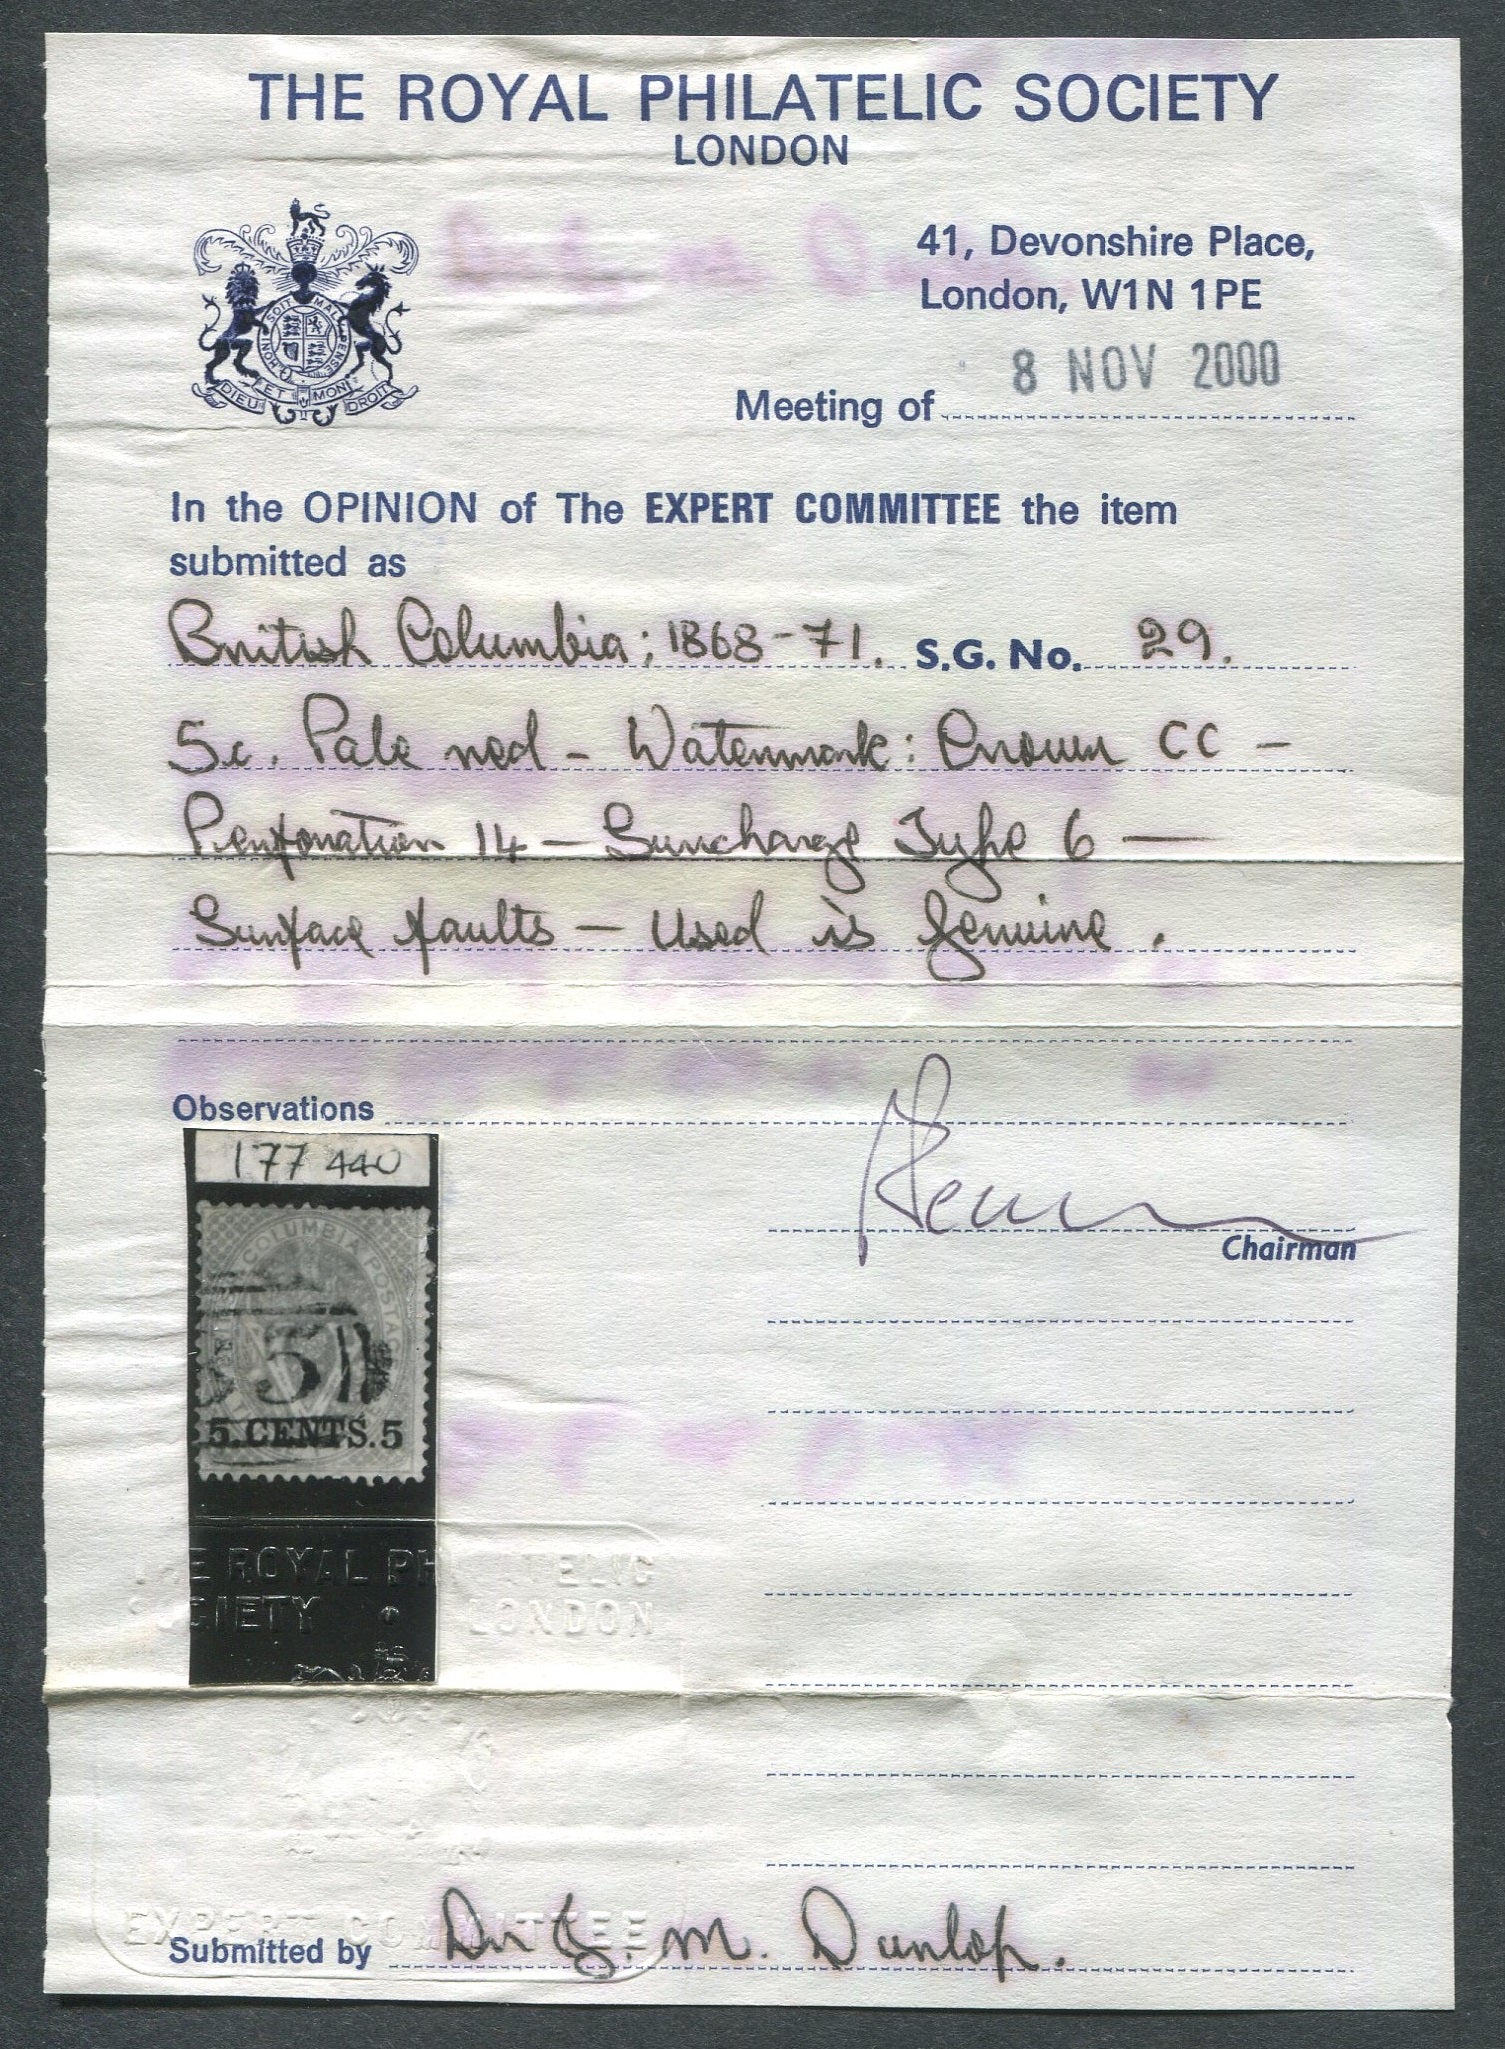 THE ROYAL PHILATELIC SOCIETY
LONDON
41, Devonshire Place,
London, W1N 1PE
SOIT MAL PENSE HONI
DIEU ET MON DROIT
Meeting of 8 NOV 2000
In the OPINION of The EXPERT COMMITTEE the item
submitted as
British Columbia; 1868-71. S.G. No. 29.
5c. Pale red - Watermark: Crown CC -
Perforation 14 - Surcharge Type 6 —
Surface faults - Used is genuine.
Observations
177 440
COLUMBIA POSTAGE
5.CENTS.5
Chairman
THE ROYAL PHILATELIC
SOCIETY LONDON
EXPERT COMMITTEE
Submitted by Dr G. M. Dunlop.